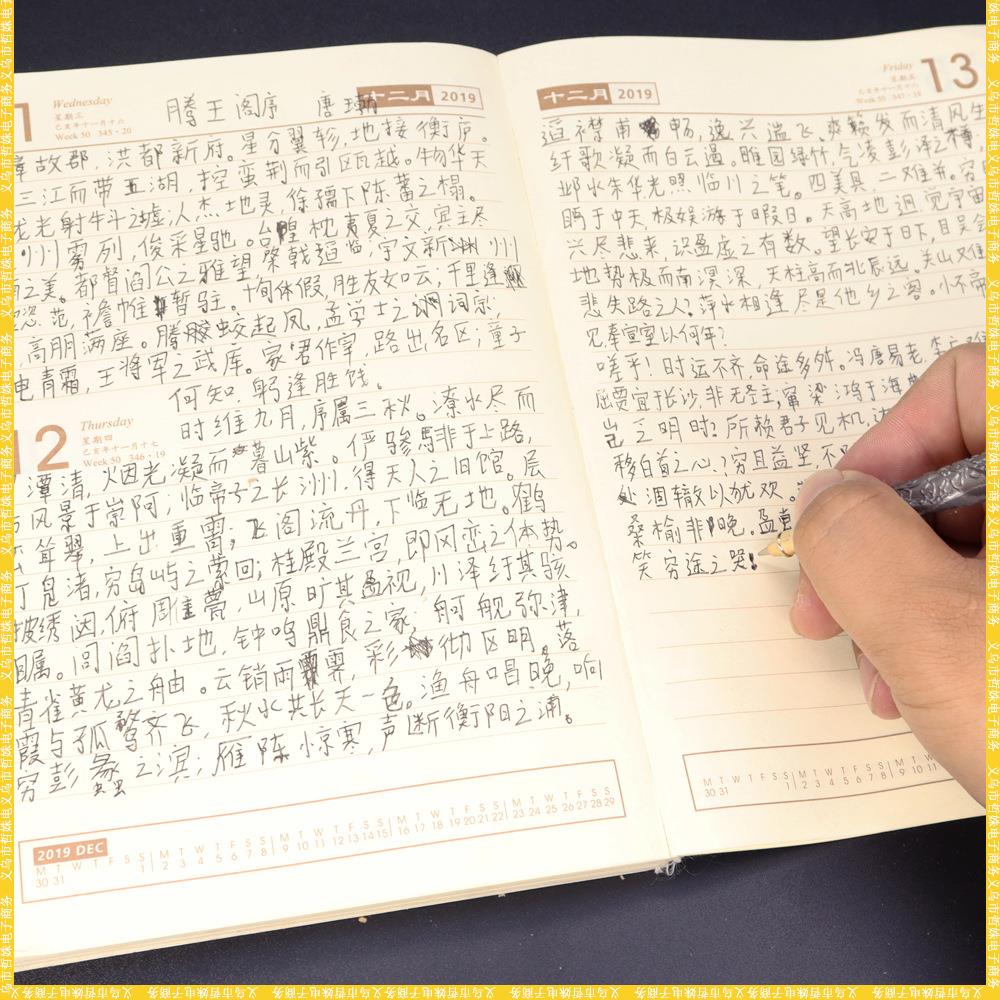 1
Wednesday
星期三
己亥年十一月十六
Week 50 345·20
十二月 2019
腾王阁序 唐
章故郡,洪都新府。星分翼轸,地接衡庐。
三江而带五湖,控蛮荆而引瓯越。物华天
龙光射牛斗之墟;人杰地灵,徐孺下陈蕃之榻。
州雾列,俊采星驰。台隍枕夷夏之交,宾主尽
南之美。都督阎公之雅望,棨戟遥临;宇文新州
范,襜帷暂驻。十旬休假,胜友如云,千里逢
高朋满座。腾蛟起风,孟学士之词宗;
电青霜,王将军之武库。家君作宰,路出名区;童子
何知,躬逢胜饯。
12
Thursday
星期四
己亥年十一月十七
Week 50 346·19
时维九月,序属三秋。潦水尽而
潭清,烟光凝而暮山紫。俨骖騑于上路,
风景于崇阿;临帝子之长洲,得天人之旧馆。层
耸翠,上出重霄;飞阁流丹,下临无地。鹤
汀凫渚,穷岛屿之萦回;桂殿兰宫,即冈峦之体势。
披绣闼,俯雕甍,山原旷其盈视,川泽纡其骇
瞩。闾阎扑地,钟鸣鼎食之家;舸舰弥津,
青雀黄龙之舳。云销雨霁,彩彻区明。落
霞与孤鹜齐飞,秋水共长天一色。渔舟唱晚,响
穷彭蠡之滨;雁阵惊寒,声断衡阳之浦。
2019 DEC
M T W T F S S M T W T F S S M T W T F S S M T W T F S S M T W T F S S
30 31 1 2 3 4 5 6 7 8 9 10 11 12 13 14 15 16 17 18 19 20 21 22 23 24 25 26 27 28 29
十二月 2019
Friday
星期五
己亥年十一月十八
Week 50 347·18
13
遥襟甫畅,逸兴遄飞。爽籁发而清风生
纤歌凝而白云遏。睢园绿竹,气凌彭泽之樽,
邺水朱华,光照临川之笔。四美具,二难并。穷
眄于中天,极娱游于暇日。天高地迥,觉宇宙
兴尽悲来,识盈虚之有数。望长安于日下,目吴会
地势极而南溟深,天柱高而北辰远。关山难
悲失路之人?萍水相逢,尽是他乡之客。小不帝
见,奉宣室以何年?
嗟乎!时运不齐,命途多舛。冯唐易老,李
屈贾谊于长沙,非无圣主;窜梁鸿于海
岂乏明时?所赖君子见机,达
移白首之心?穷且益坚,不
处涸辙以犹欢。
桑榆非晚。孟
笑穷途之哭!
M T W T F S S M T W T F S S M T W
30 31 1 2 3 4 5 6 7 8 9 10 11
义乌市哲姝电子商务